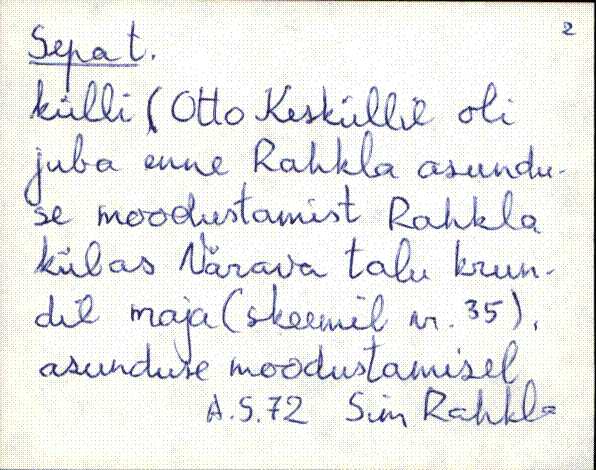 2
Sepa t.
külli (Otto Kesküllil oli
juba enne Rahkla asundu-
se moodustamist Rahkla
külas Värava talu krun-
dil maja (skeemil nr. 35),
asunduse moodustamisel
A.S.72 Sim Rahkla